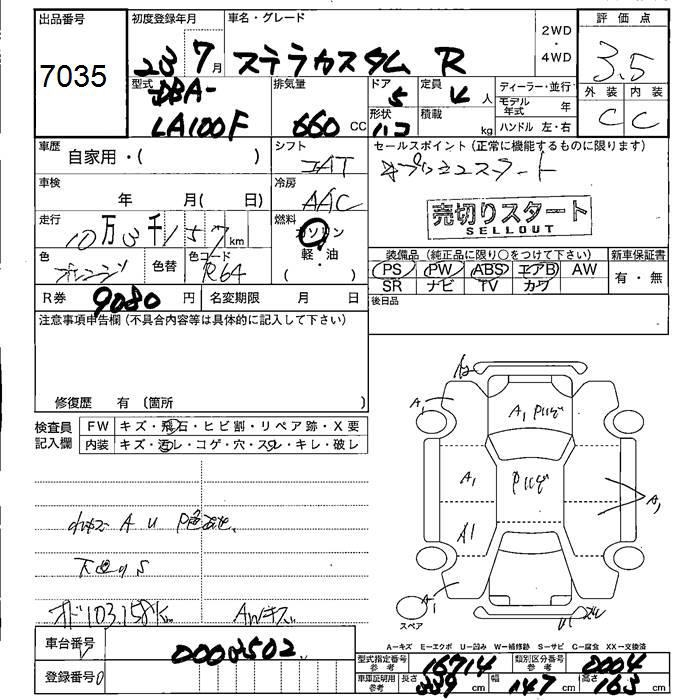 出品番号
7035
初度登録年月
23 7月
車名・グレード
ステラカスタム R
2WD
・
4WD
評価点
3.5
外装 内装
C C
型式
DBA-
LA100F
排気量
660 CC
ドア
5
定員
4 人
形状
ハコ
積載
kg
ディーラー・並行
モデル年式 年
ハンドル 左・右
車歴
自家用・( )
シフト
IAT
セールスポイント (正常に機能するものに限ります)
オプションスタート
売切りスタート
SELLOUT
車検
年 月( 日)
冷房
AAC
走行
10万3千157km
燃料
ガソリン
軽・油
( )
色
オレンジ
色替
色コード
R64
装備品 (純正品に限り○をつけて下さい)
PS PW ABS エアB AW
SR ナビ TV カワ
新車保証書
有・無
R券 9080 円
名変期限 月 日
後日品
注意事項申告欄 (不具合内容等は具体的に記入して下さい)
修復歴 有 (箇所 )
検査員
記入欄
FW キズ・飛石・ヒビ割・リペア跡・X要
内装 キズ・汚レ・コゲ・穴・スレ・キレ・破レ
A U P色
下廻りS
オド103,158K
AWキズ
A1
A1
A1
A1
A1
A1
スペア
A-キズ E-エクボ U-凹み W-補修跡 S-サビ C-腐食 XX-交換済
車台番号
0002502
登録番号
型式指定番号
参考
16714
類別区分番号
参考
0004
車庫証明用
参考
長さ
339 cm
幅
147 cm
高さ
163 cm